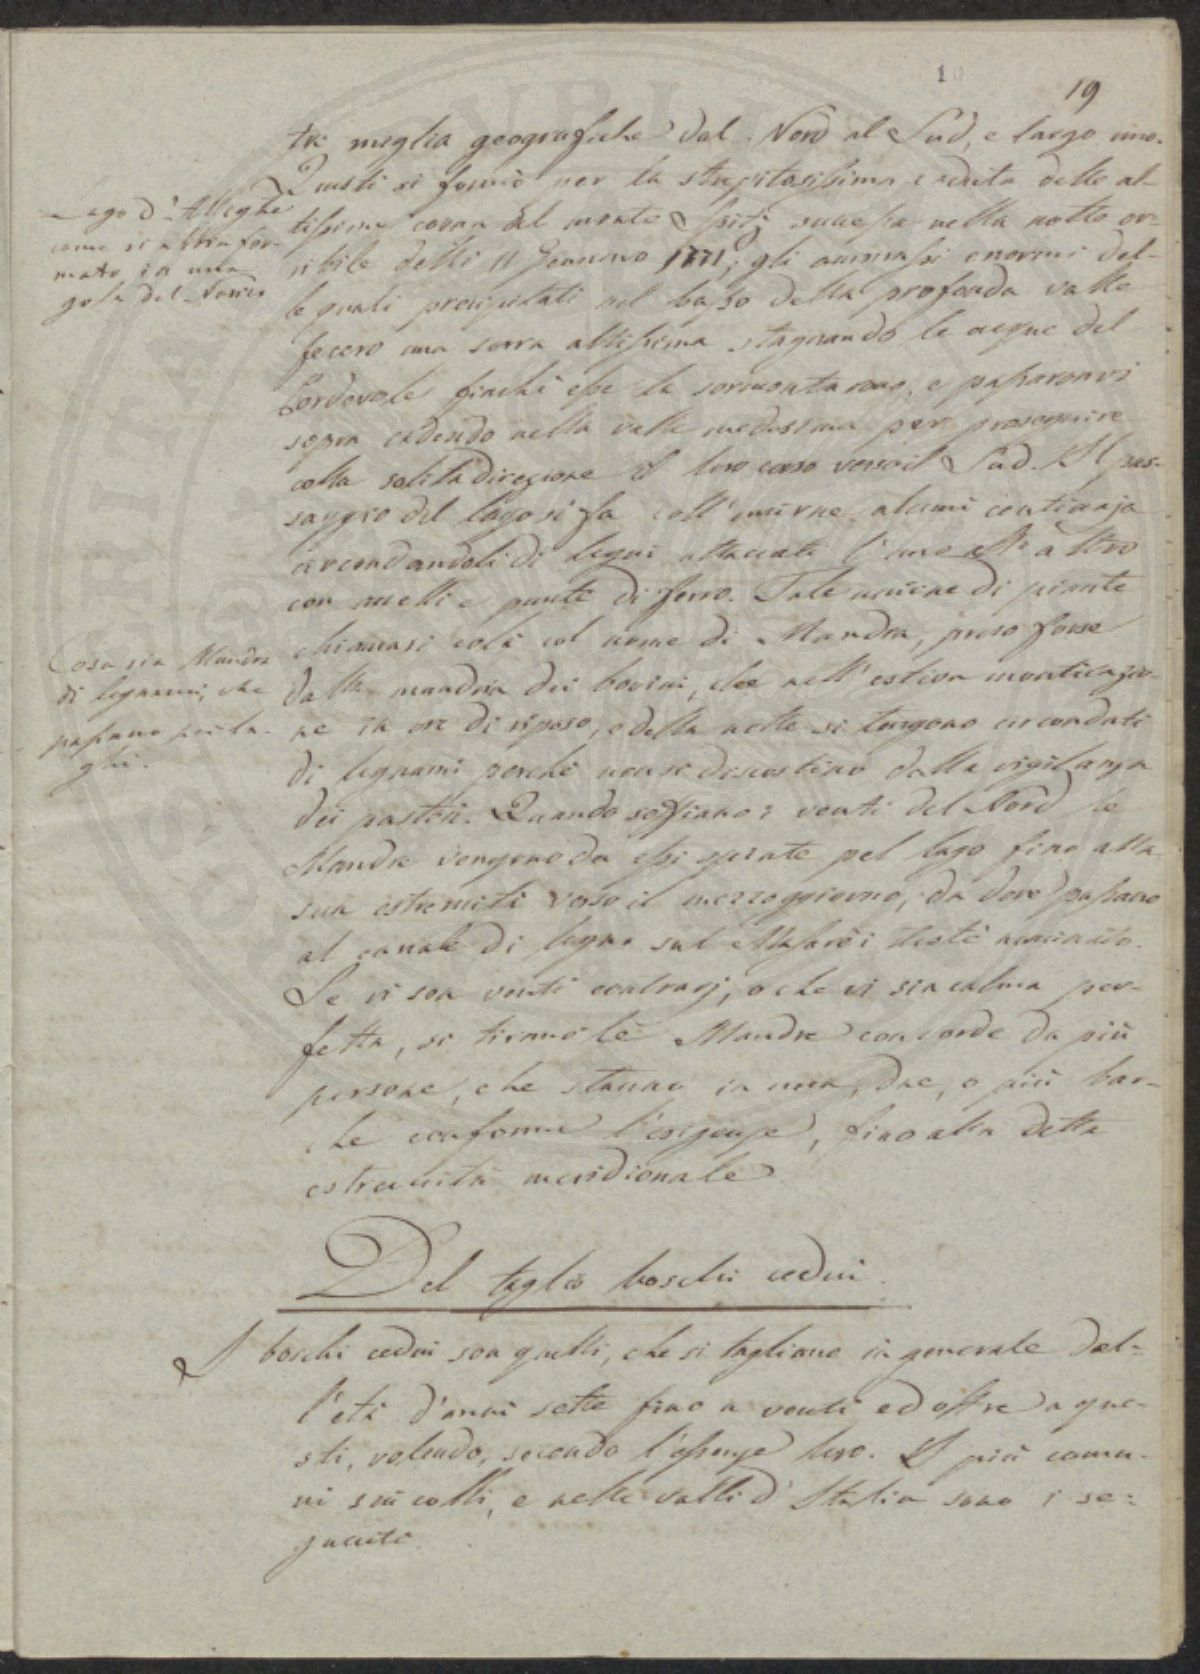 10
19
tre miglia geografiche dal Nord al Sud, e largo uno.
Questi si formò per la stupitosissima caduta delle al-
tissime corna del monte Spitz successa nella notte or-
ribile delli 11 Gennaro 1771; gli ammassi enormi del-
le quali precipitati nel basso della profonda valle
fecero una serra altissima stagnando le acque del
Cordevole finchè esse la sormontarono, e passaronvi
sopra cadendo nella valle medesima per proseguire
colla solita direzione il loro corso verso il Sud. Il pas-
saggio del lago si fa coll'unirne alcuni centinaja
circondandoli di legni attaccati l'uno all'altro
con anelli e punte di ferro. Tale unione di piante
chiamasi colà col nome di Mandra, preso forse
dalla mandria dei bovini, che nell'estiva monticazio-
ne in ore di riposo, e della notte si tengono circondati
di legnami perchè non si discostino dalla vigilanza
dei pastori. Quando soffiano i venti del Nord le
Mandre vengono da essi spirate pel lago fino alla
sua estremità verso il mezzogiorno, da dove passano
al canale di legno sul Masarè i testè nominato.
Se vi son venti contrarj, o che vi sia calma per-
fetta, si tirano le Mandre con corde da più
persone, che stanno in una, due, o più bar-
che conforme l'esigenze, fino alla detta
estremità meridionale
Lago d'Alleghe
come si abbia for-
mato in una
gola del
Cosa sia Mandra
di legnami, che
passano pei la-
ghi.
Del taglio boschi cedui.
I boschi cedui son quelli, che si tagliano in generale dal-
l'età d'anni sette fino a venti ed oltre a que-
sti, volendo, secondo l'essenze loro. I più comu-
ni sui colli, e nelle valli d'Italia sono i se-
guenti